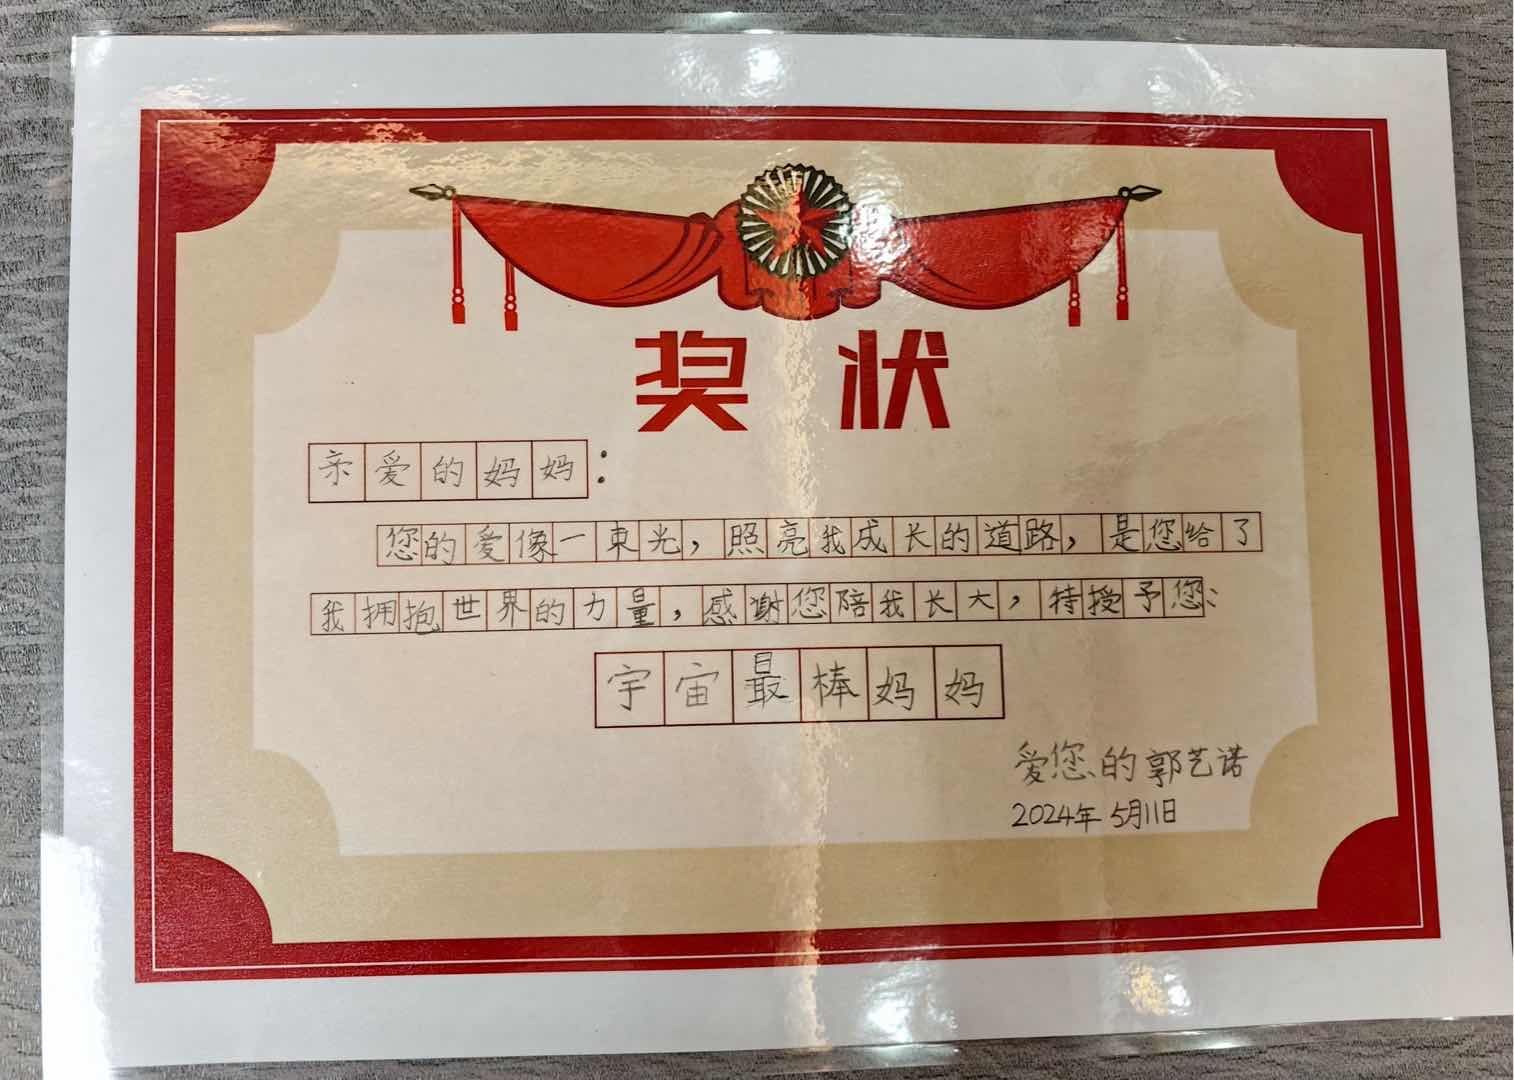 奖状
亲爱的妈妈：
您的爱像一束光，照亮我成长的道路，是您给了
我拥抱世界的力量，感谢您陪我长大，特授予您：
宇宙最棒妈妈
爱您的郭艺诺
2024年5月11日